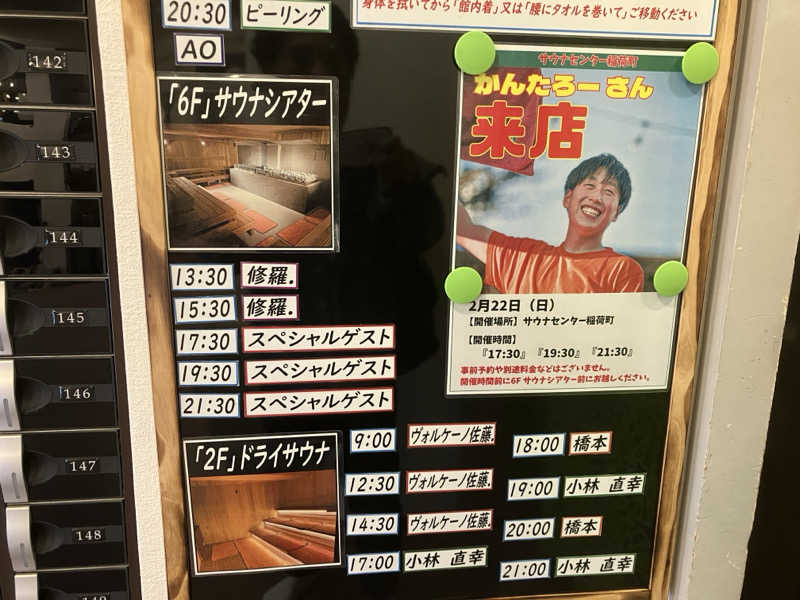 20:30 ピーリング
AO
身体を拭いてから「館内着」又は「腰にタオルを巻いて」ご移動ください
142
143
144
145
146
147
148
「6F」サウナシアター
13:30 修羅.
15:30 修羅.
17:30 スペシャルゲスト
19:30 スペシャルゲスト
21:30 スペシャルゲスト
サウナセンター稲荷町
かんたろーさん
来店
2月22日（日）
【開催場所】サウナセンター稲荷町
【開催時間】
『17:30』『19:30』『21:30』
事前予約や別途料金などはございません。
開催時間前に6F サウナシアター前にお越しください。
「2F」ドライサウナ
9:00 ヴォルケーノ佐藤.
12:30 ヴォルケーノ佐藤.
14:30 ヴォルケーノ佐藤.
17:00 小林 直幸
18:00 橋本
19:00 小林 直幸
20:00 橋本
21:00 小林 直幸